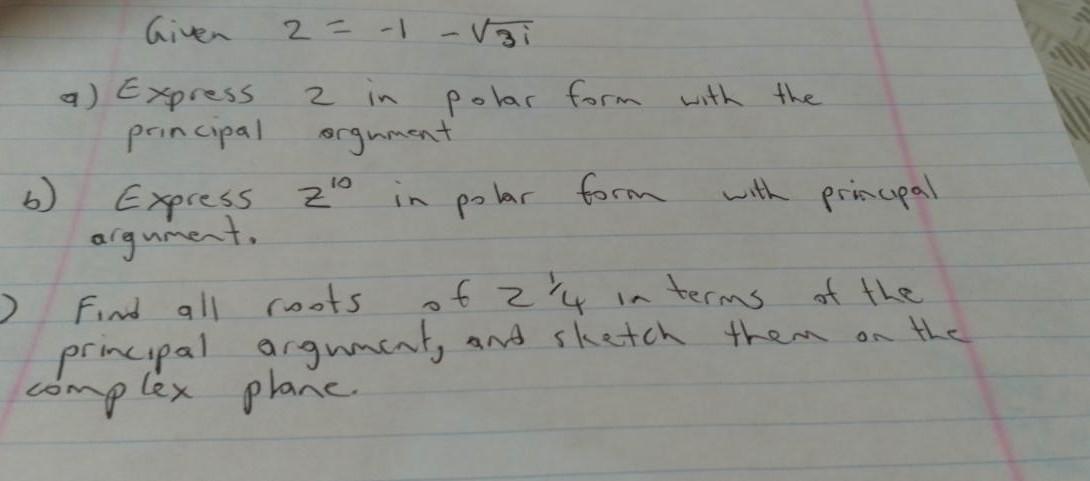 Given z = -1 - √3i
a) Express z in polar form with the
principal orgnment
b) Express z^10 in polar form with principal
argument.
) Find all roots of z^1/4 in terms of the
principal argument, and sketch them on the
complex plane.